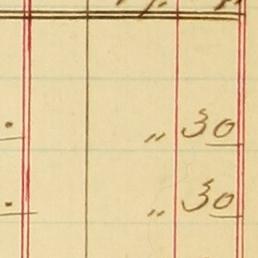 . „ 30
. „ 30